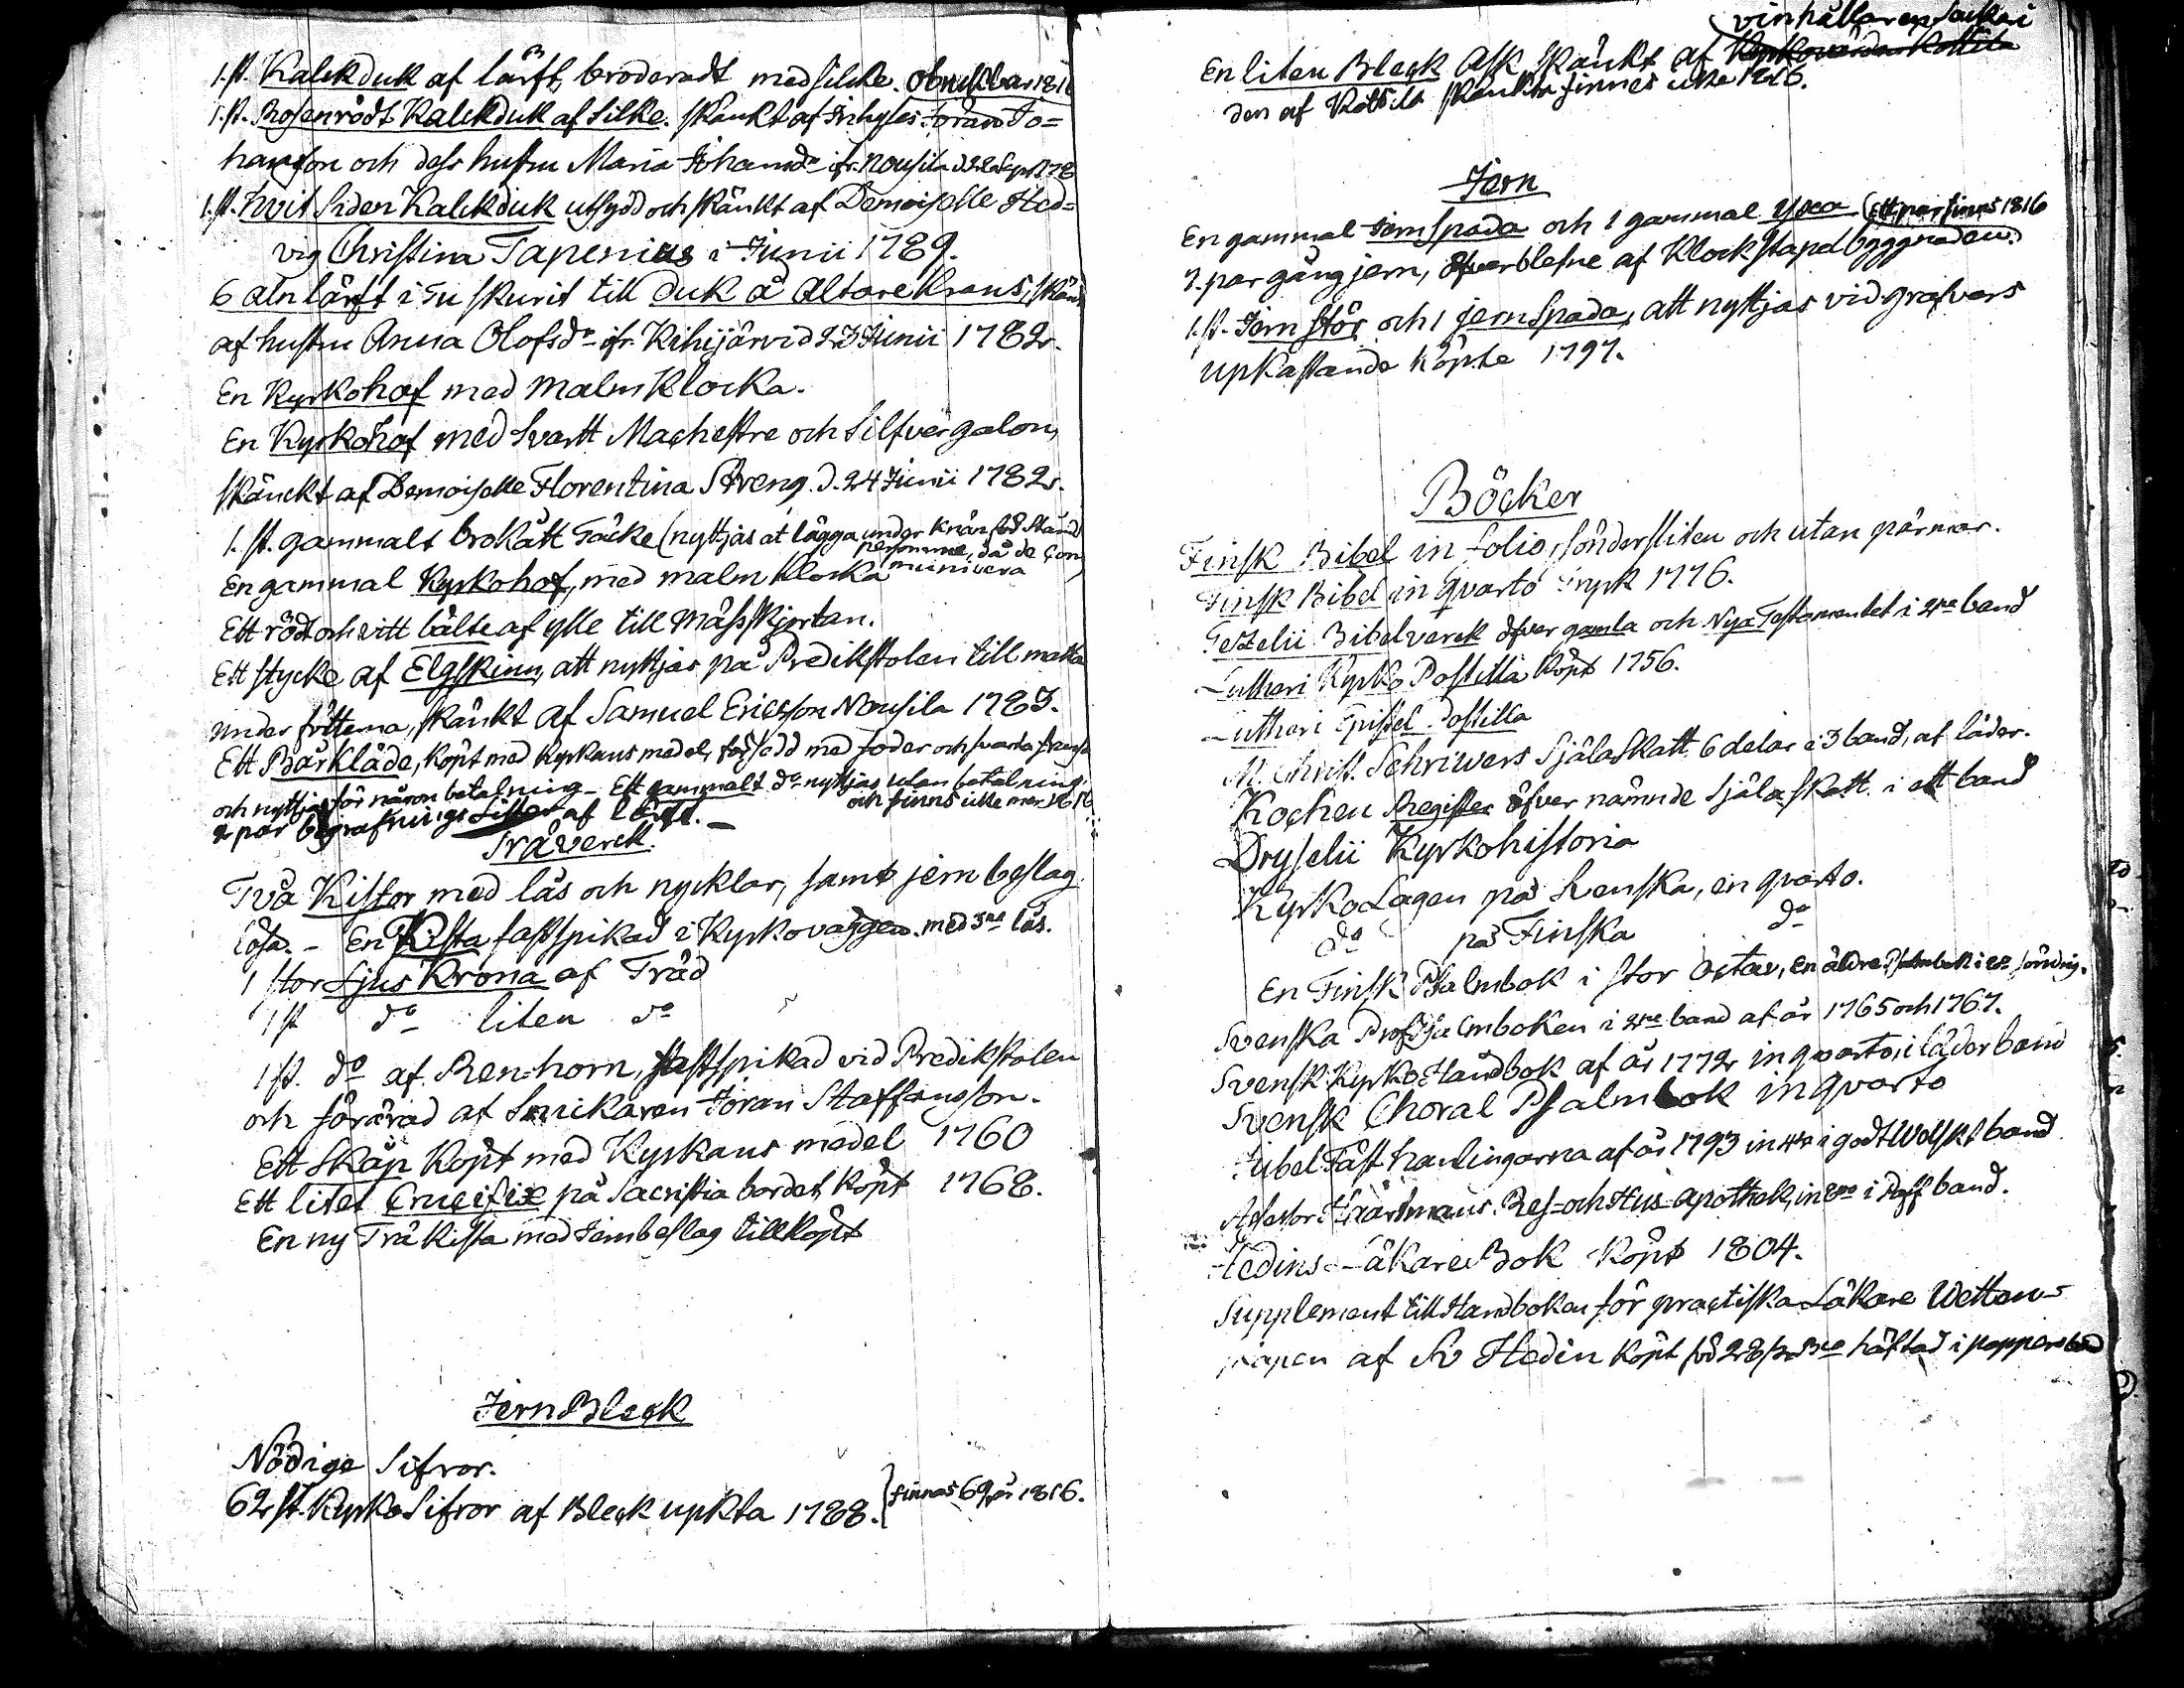 1. st. Kalckduk af lärft, broderadt med silcke. Obrukbar 1816
1. st. Rosenrödt Kalckduk af Silke. skänkt af Inhyses Jöran Jo=
hansson och dess hustru Maria Johansdr ifr. Nousila d.
1. st. hvit Siden Kalckduk utsydd och skänkt af Demoiselle Hed=
vig Christina Tapenius i Junii 1789.
6 aln lärft i tu skurit till duk å Altare Krans, skänkt
af hustru Anna Olofsdr ifr. Kihijärvi d 23 Junii 1782.
En Kyrkohof med malm Klocka.
En Kyrkohof med Svartt Machestre och Silfver galon,
skänckt af Demoiselle Florentina Streng. d. 24 Junii 1782.
1. st. gammalt brokått Täcke (nyttjas at lägga under knän för Stånds
personerne, då de Com
municera
En gammal Kyrkohof, med malm Klocka
Ett rödt och vitt bälte af ylle till Mässskjortan.
Ett stycke af Elgskinn, att nyttjas på Predikstolen till matta
under fötterna, skänkt af Samuel Ericsson Nousila 1783.
Ett Bårkläde, köpt med Kyrkans medel, försedd med foder och svarta fransar
och nyttjas för någon betalning - Ett gammalt do nyttjas utan betalning
och finns icke mer 1816
2 par begrafnings af lärft. -
Träverck.
Två Kistor med lås och nycklar, samt jern beslag.
lösa. - En Kista fastspikad i Kyrkoväggen med 3ne lås.
1 stor Ljus Krona af Träd
1 st do liten do
1 st. do af Ren-horn, fastspikad vid Predikstolen
och förärad af Snickaren Jöran Staffansson.
Ett Skåp Köpt med Kyrkans medel 1760
Ett litet Crucifix på Sacristia bordet, Köpt 1768.
En ny Trä Kista med Jernbeslag tillköpt
Jern Bleck
Nödige Sifror.
62 st. Kyrko Sifror af Bleck upkta 1788. {finnas 69 år 1816.
vinhållaren Sackari
En liten Bleck Ask skänkt af Kyrkovärden Kottila
den af Kottila skänkta finnes icke 1816.
Jern
En gammal Jernspada och 1 gammal yxa (Ett par finns 1816
3. par gångjern, öfverblefne af Klockstapelbyggnaden.)
1. st. Jern stör och 1 jernspada, att nyttjas vid grafvars
upkastande köpte 1797.
Böcker
Finsk Bibel in folio, söndersliten och utan pärmar.
Finsk Bibel in qvarto tryck 1776.
Gezelii Bibelverck öfver gamla och Nya Testamentet i 2ne band
Lutheri Kyrko Postilla köpt 1756.
Lutheri Epistel Postilla
M. Christ. Schriwers Själaskatt 6 delar i 3 band, af läder.
Kochen Register öfver nämnde Själaskatt i ett band
Dryselii Kyrkohistoria
Kyrko Lagen på Svenska, en qvarto.
do på Finska do
En Finsk Psalmbok i stor Octav, en äldre Psalmbok i 8o söndrig.
Svenska Prof Psalmboken i 2ne band af år 1765 och 1767.
Svensk Kyrko Handbok af år 1772 in qvarto, i läderband
Svensk Choral Psalmbok in qvarto
Jubel Fäst handlingarna af år 1793 in 4to i godt Wälskt band
Assessor Haartmans Res- och Hus-apothek, in 8vo i Paff band.
Hedins Läkare Bok köpt 1804.
Supplement till Handboken för practiska Läkare Wetten-
skapen af Sv Hedin köpt för häftad i pappersband